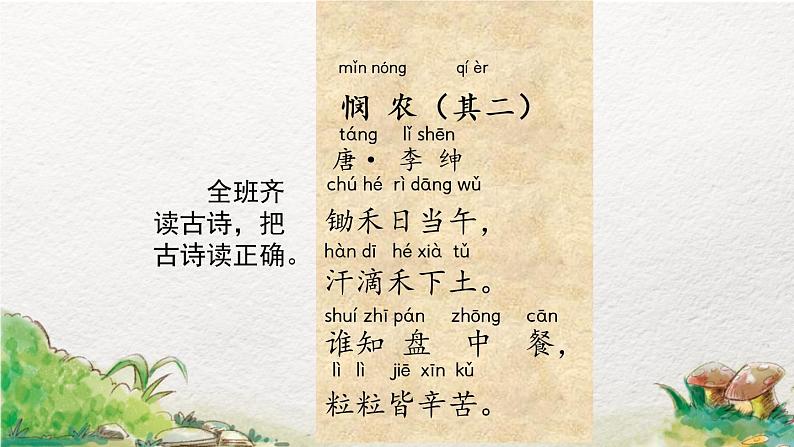 全班齐
读古诗，把
古诗读正确。
mǐn nóng qí èr
悯 农（其二）
táng lǐ shēn
唐· 李 绅
chú hé rì dāng wǔ
锄禾日当午，
hàn dī hé xià tǔ
汗滴禾下土。
shuí zhī pán zhōng cān
谁知 盘 中 餐，
lì lì jiē xīn kǔ
粒粒皆辛苦。